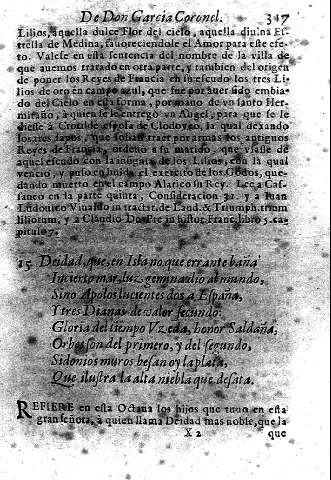 De Don Garcia Coronel. 317
Lilios, aquella dulce Flor del cielo, aquella diuina Es-
trella de Medina, fauoreciendole el Amor para este efe-
to. Valese en esta sentencia del nombre de la villa de
que auemos tratado en otra parte, y tambien del origen
de poner los Reyes de Francia en su escudo los tres Li
lios de oro en campo azul, que fue por auer sido embia-
do del Cielo en esta forma, por mano de vn santo Her-
mitaño, à quien se le entregò vn Angel, para que se le
diesse à Crotilde esposa de Clodoueo, la qual dexando
los tres sapos, que solian traer por armas los antiguos
Reyes de Francia, ordenò a su marido, que vsasse de
aquel escudo con la insignia de los Lilios, con la qual
venciò, y puso en huida el exercito de los Godos, que-
dando muerto en el campo Alarico su Rey. Lee a Cas-
saneo en la parte quinta, Consideracion 32. y a Iuan
Ludouico Viualdo in tractat. de Laud. & Triumph. trium
liliorum, y a Claudio Do. Pre in histor Franc. libro 5. ca-
pitulo 7.
15 Deidad, que en Isla no que errante baña
Incierto mar, luz gemina dio al mundo,
Sino Apolos lucientes dos a España,
Y tres Dianas de valor fecundo:
Gloria del tiempo Vzeda, honor Saldaña,
Orbes son del primero, y del segundo,
Sidonios muros besan oy la plata,
Que ilustra la alta niebla que desata.
REFIERE en esta Octaua los hijos que tuuo en esta
gran señora, à quien llama Deidad mas noble, que la
X 2 que